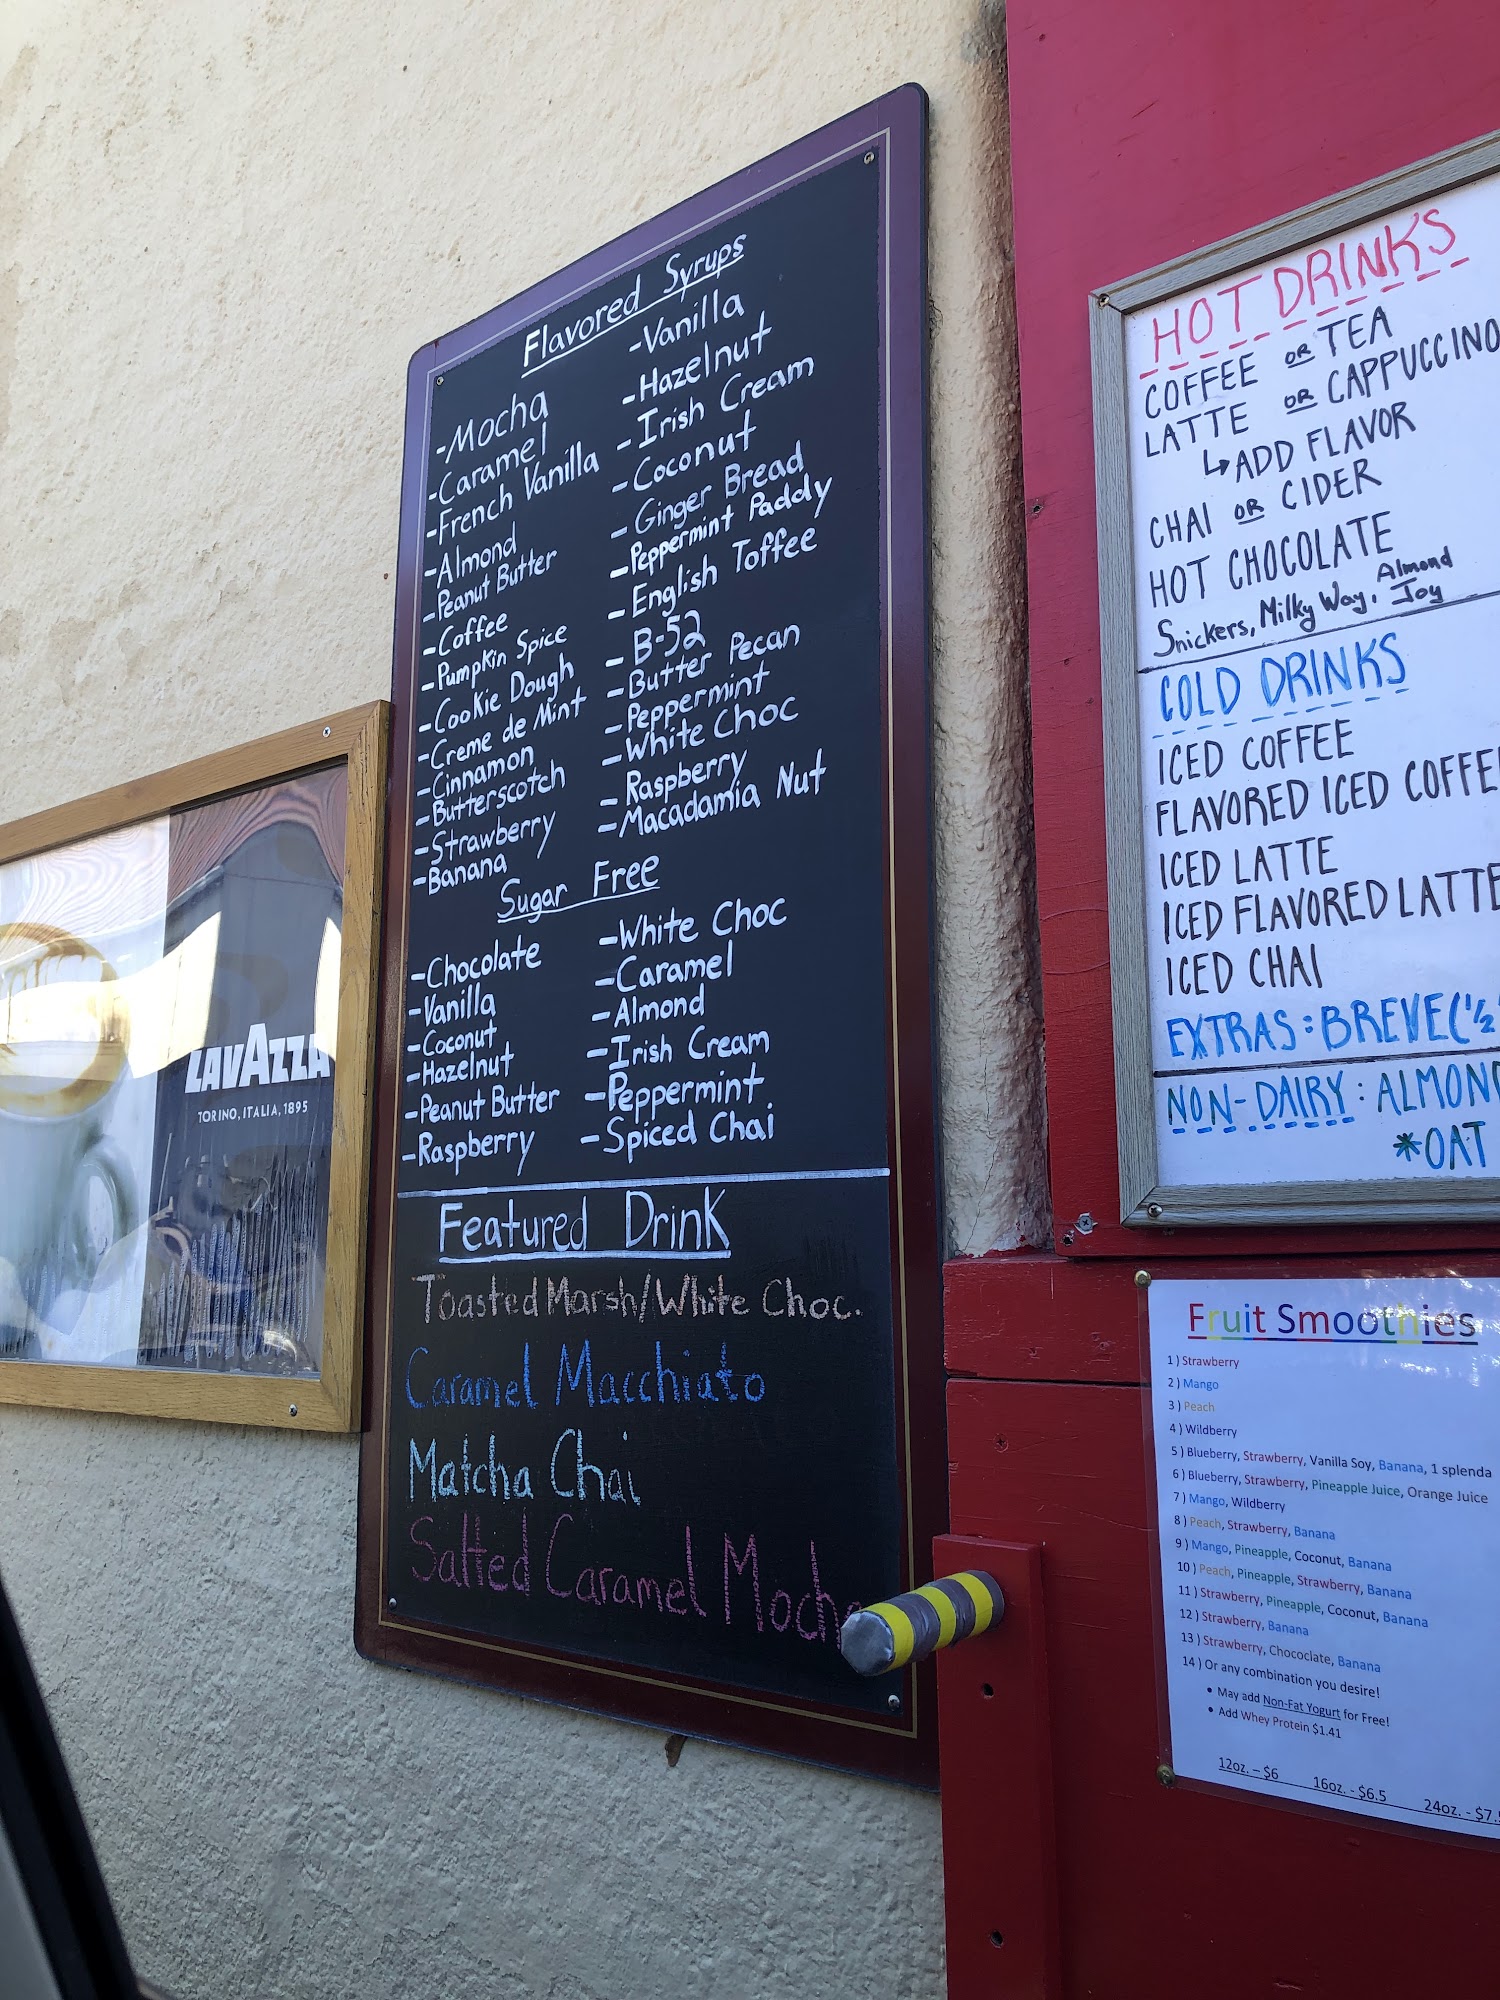 LAVAZZA
TORINO, ITALIA, 1895
Flavored Syrups
-Mocha
-Caramel
-French Vanilla
-Almond
-Peanut Butter
-Coffee
-Pumpkin Spice
-Cookie Dough
-Creme de Mint
-Cinnamon
-Butterscotch
-Strawberry
-Banana
-Vanilla
-Hazelnut
-Irish Cream
-Coconut
-Ginger Bread
-Peppermint Paddy
-English Toffee
-B-52
-Butter Pecan
-Peppermint
-White Choc
-Raspberry
-Macadamia Nut
Sugar Free
-Chocolate
-Vanilla
-Coconut
-Hazelnut
-Peanut Butter
-Raspberry
-White Choc
-Caramel
-Almond
-Irish Cream
-Peppermint
-Spiced Chai
Featured Drink
Toasted Marsh/White Choc.
Caramel Macchiato
Matcha Chai
Salted Caramel Mocha
HOT DRINKS
COFFEE OR TEA
LATTE OR CAPPUCCINO
↳ADD FLAVOR
CHAI OR CIDER
HOT CHOCOLATE
Snickers, Milky Way, Almond Joy
COLD DRINKS
ICED COFFEE
FLAVORED ICED COFFE
ICED LATTE
ICED FLAVORED LATTE
ICED CHAI
EXTRAS: BREVE(½
NON-DAIRY: ALMON
*OAT
Fruit Smoothies
1 ) Strawberry
2 ) Mango
3 ) Peach
4 ) Wildberry
5 ) Blueberry, Strawberry, Vanilla Soy, Banana, 1 splenda
6 ) Blueberry, Strawberry, Pineapple Juice, Orange Juice
7 ) Mango, Wildberry
8 ) Peach, Strawberry, Banana
9 ) Mango, Pineapple, Coconut, Banana
10 ) Peach, Pineapple, Strawberry, Banana
11 ) Strawberry, Pineapple, Coconut, Banana
12 ) Strawberry, Banana
13 ) Strawberry, Chococlate, Banana
14 ) Or any combination you desire!
• May add Non-Fat Yogurt for Free!
• Add Whey Protein $1.41
12oz. – $6 16oz. - $6.5 24oz. - $7.